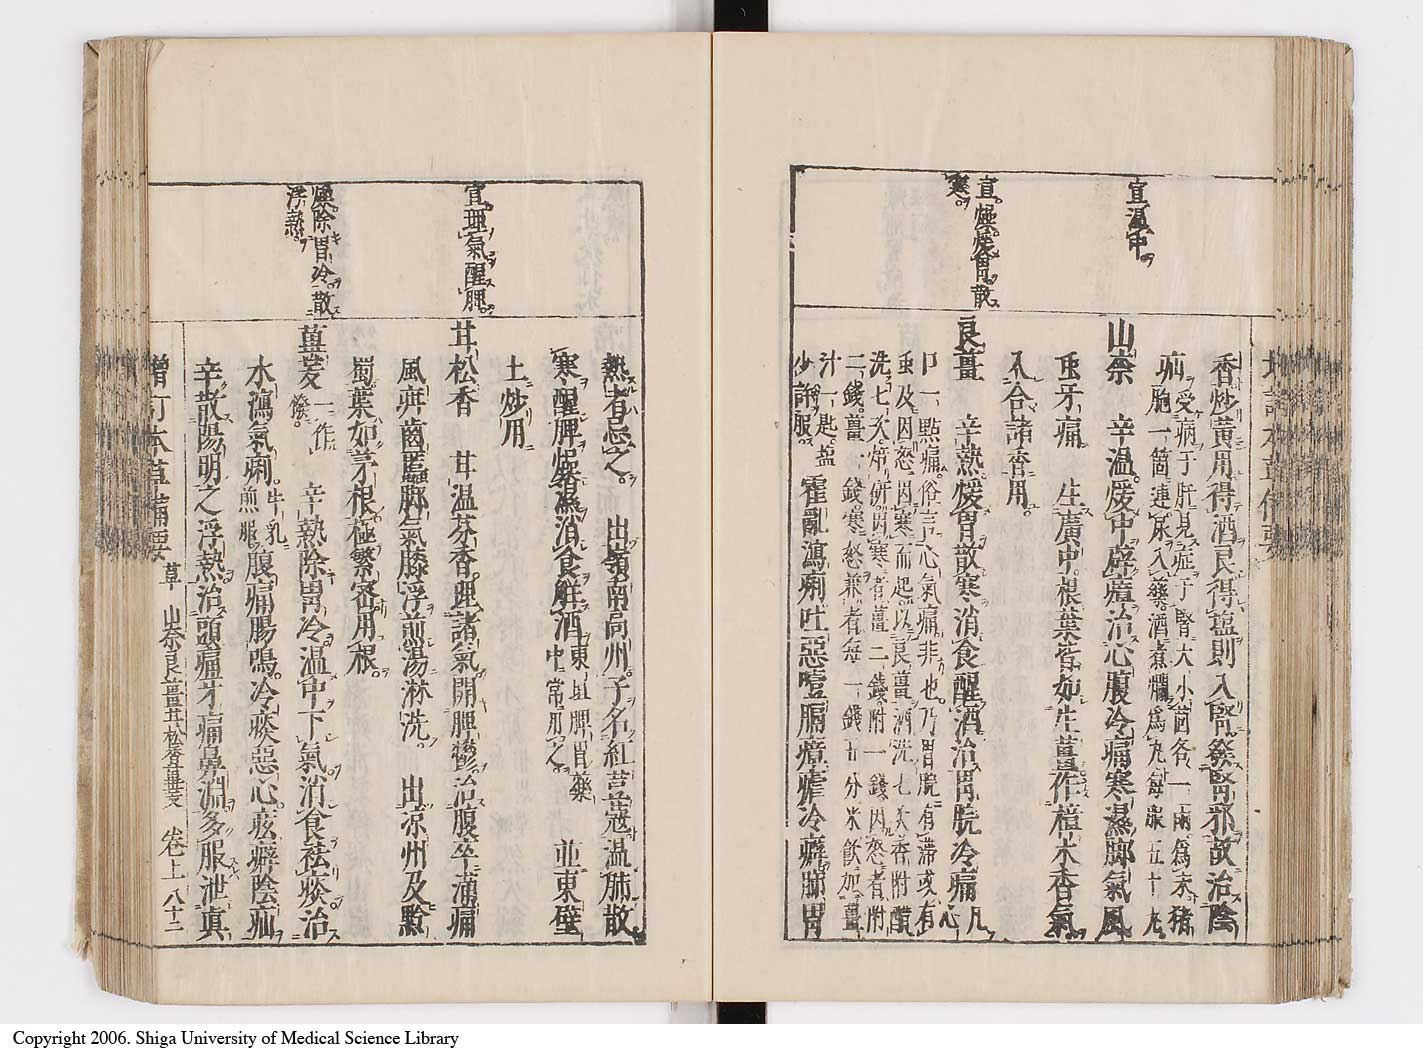 宜溫中
宜煖胃散
寒
香炒黃用得酒良得塩則入腎發腎邪故治陰
疝受病于肝見症于腎大小茴各一兩為末猪
胞一箇連尿入藥酒煮爛為丸每服五十丸
山柰 辛溫煖中辟瘴治心腹冷痛寒濕脚氣風
虫牙痛 生廣中根葉皆如生薑作樟木香氣
入合諸香用
良薑 辛熱煖胃散寒消食醒酒治胃脘冷痛凡心
口一點痛俗言心氣痛非也乃胃脘有滯或有
虫及因怒因寒而起以良薑酒洗七次香附醋
洗七次焙研因寒者薑二錢附一錢因怒者附
二錢薑一錢寒怒兼者每一錢五分米飲加薑
汁一匙塩
少許服 霍亂瀉痢吐惡噎膈瘴瘧冷癖肺胃
宜理氣醒脾
燥除胃冷散
浮熱
熱者忌之 出嶺南高州子名紅荳蔻溫肺散
寒醒脾燥濕消食解酒東垣脾胃藥中常用之 並東壁
土炒用
甘松香 甘溫芬香理諸氣開脾鬱治腹卒滿痛
風疳齒䘌脚氣膝浮煎湯淋洗 出凉州及黔
蜀葉如茅根極繁密用根
蓽茇一作 辛熱除胃冷溫中下氣消食祛痰治
水瀉氣痢牛乳煎服腹痛腸鳴冷痰惡心痃癖陰疝
辛散陽明之浮熱治頭痛牙痛鼻淵多服泄眞
增訂本草備要 草 山柰良薑甘松香蓽茇 卷上 八十二